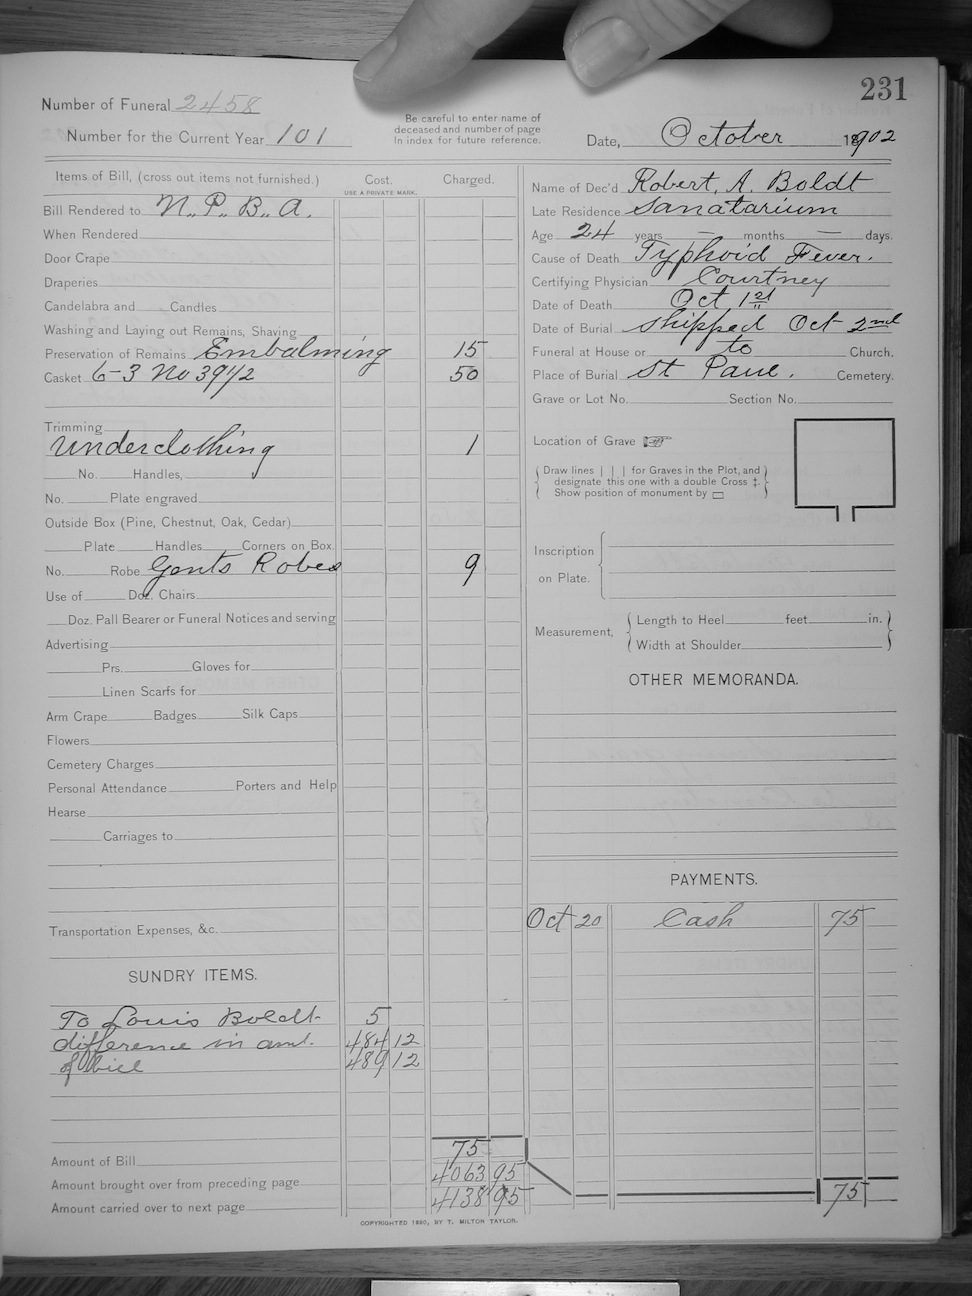 231
Number of Funeral 2458
Number for the Current Year 101
Be careful to enter name of
deceased and number of page
in index for future reference.
Date, October 1902
Items of Bill, (cross out items not furnished.) Cost. Charged.
USE A PRIVATE MARK.
Bill Rendered to N.P.B.A.
When Rendered
Door Crape
Draperies
Candelabra and Candles
Washing and Laying out Remains, Shaving
Preservation of Remains Embalming 15
Casket 6-3 No 39 1/2 50
Trimming
Underclothing 1
No. Handles,
No. Plate engraved
Outside Box (Pine, Chestnut, Oak, Cedar)
Plate Handles Corners on Box.
No. Robe Gents Robes 9
Use of Doz. Chairs
Doz. Pall Bearer or Funeral Notices and serving
Advertising
Prs. Gloves for
Linen Scarfs for
Arm Crape Badges Silk Caps
Flowers
Cemetery Charges
Personal Attendance Porters and Help
Hearse
Carriages to
Transportation Expenses, &c.
SUNDRY ITEMS.
To Louis Boldt 5
difference in amt. 484 12
of bill 489 12
Amount of Bill 75
Amount brought over from preceding page 4063 95
Amount carried over to next page 4138 95
Name of Dec'd Robert. A. Boldt
Late Residence Sanatarium
Age 24 years — months — days.
Cause of Death Typhoid Fever.
Certifying Physician Courtney
Date of Death Oct 1st
Date of Burial shipped Oct 2nd
Funeral at House or to Church.
Place of Burial St Paul. Cemetery.
Grave or Lot No. Section No.
Location of Grave ☞
Draw lines | | | for Graves in the Plot, and
designate this one with a double Cross ‡.
Show position of monument by ▭
Inscription
on Plate.
Measurement, Length to Heel feet in.
Width at Shoulder
OTHER MEMORANDA.
PAYMENTS.
Oct 20 Cash 75
75
COPYRIGHTED 1890, BY T. MILTON TAYLOR.